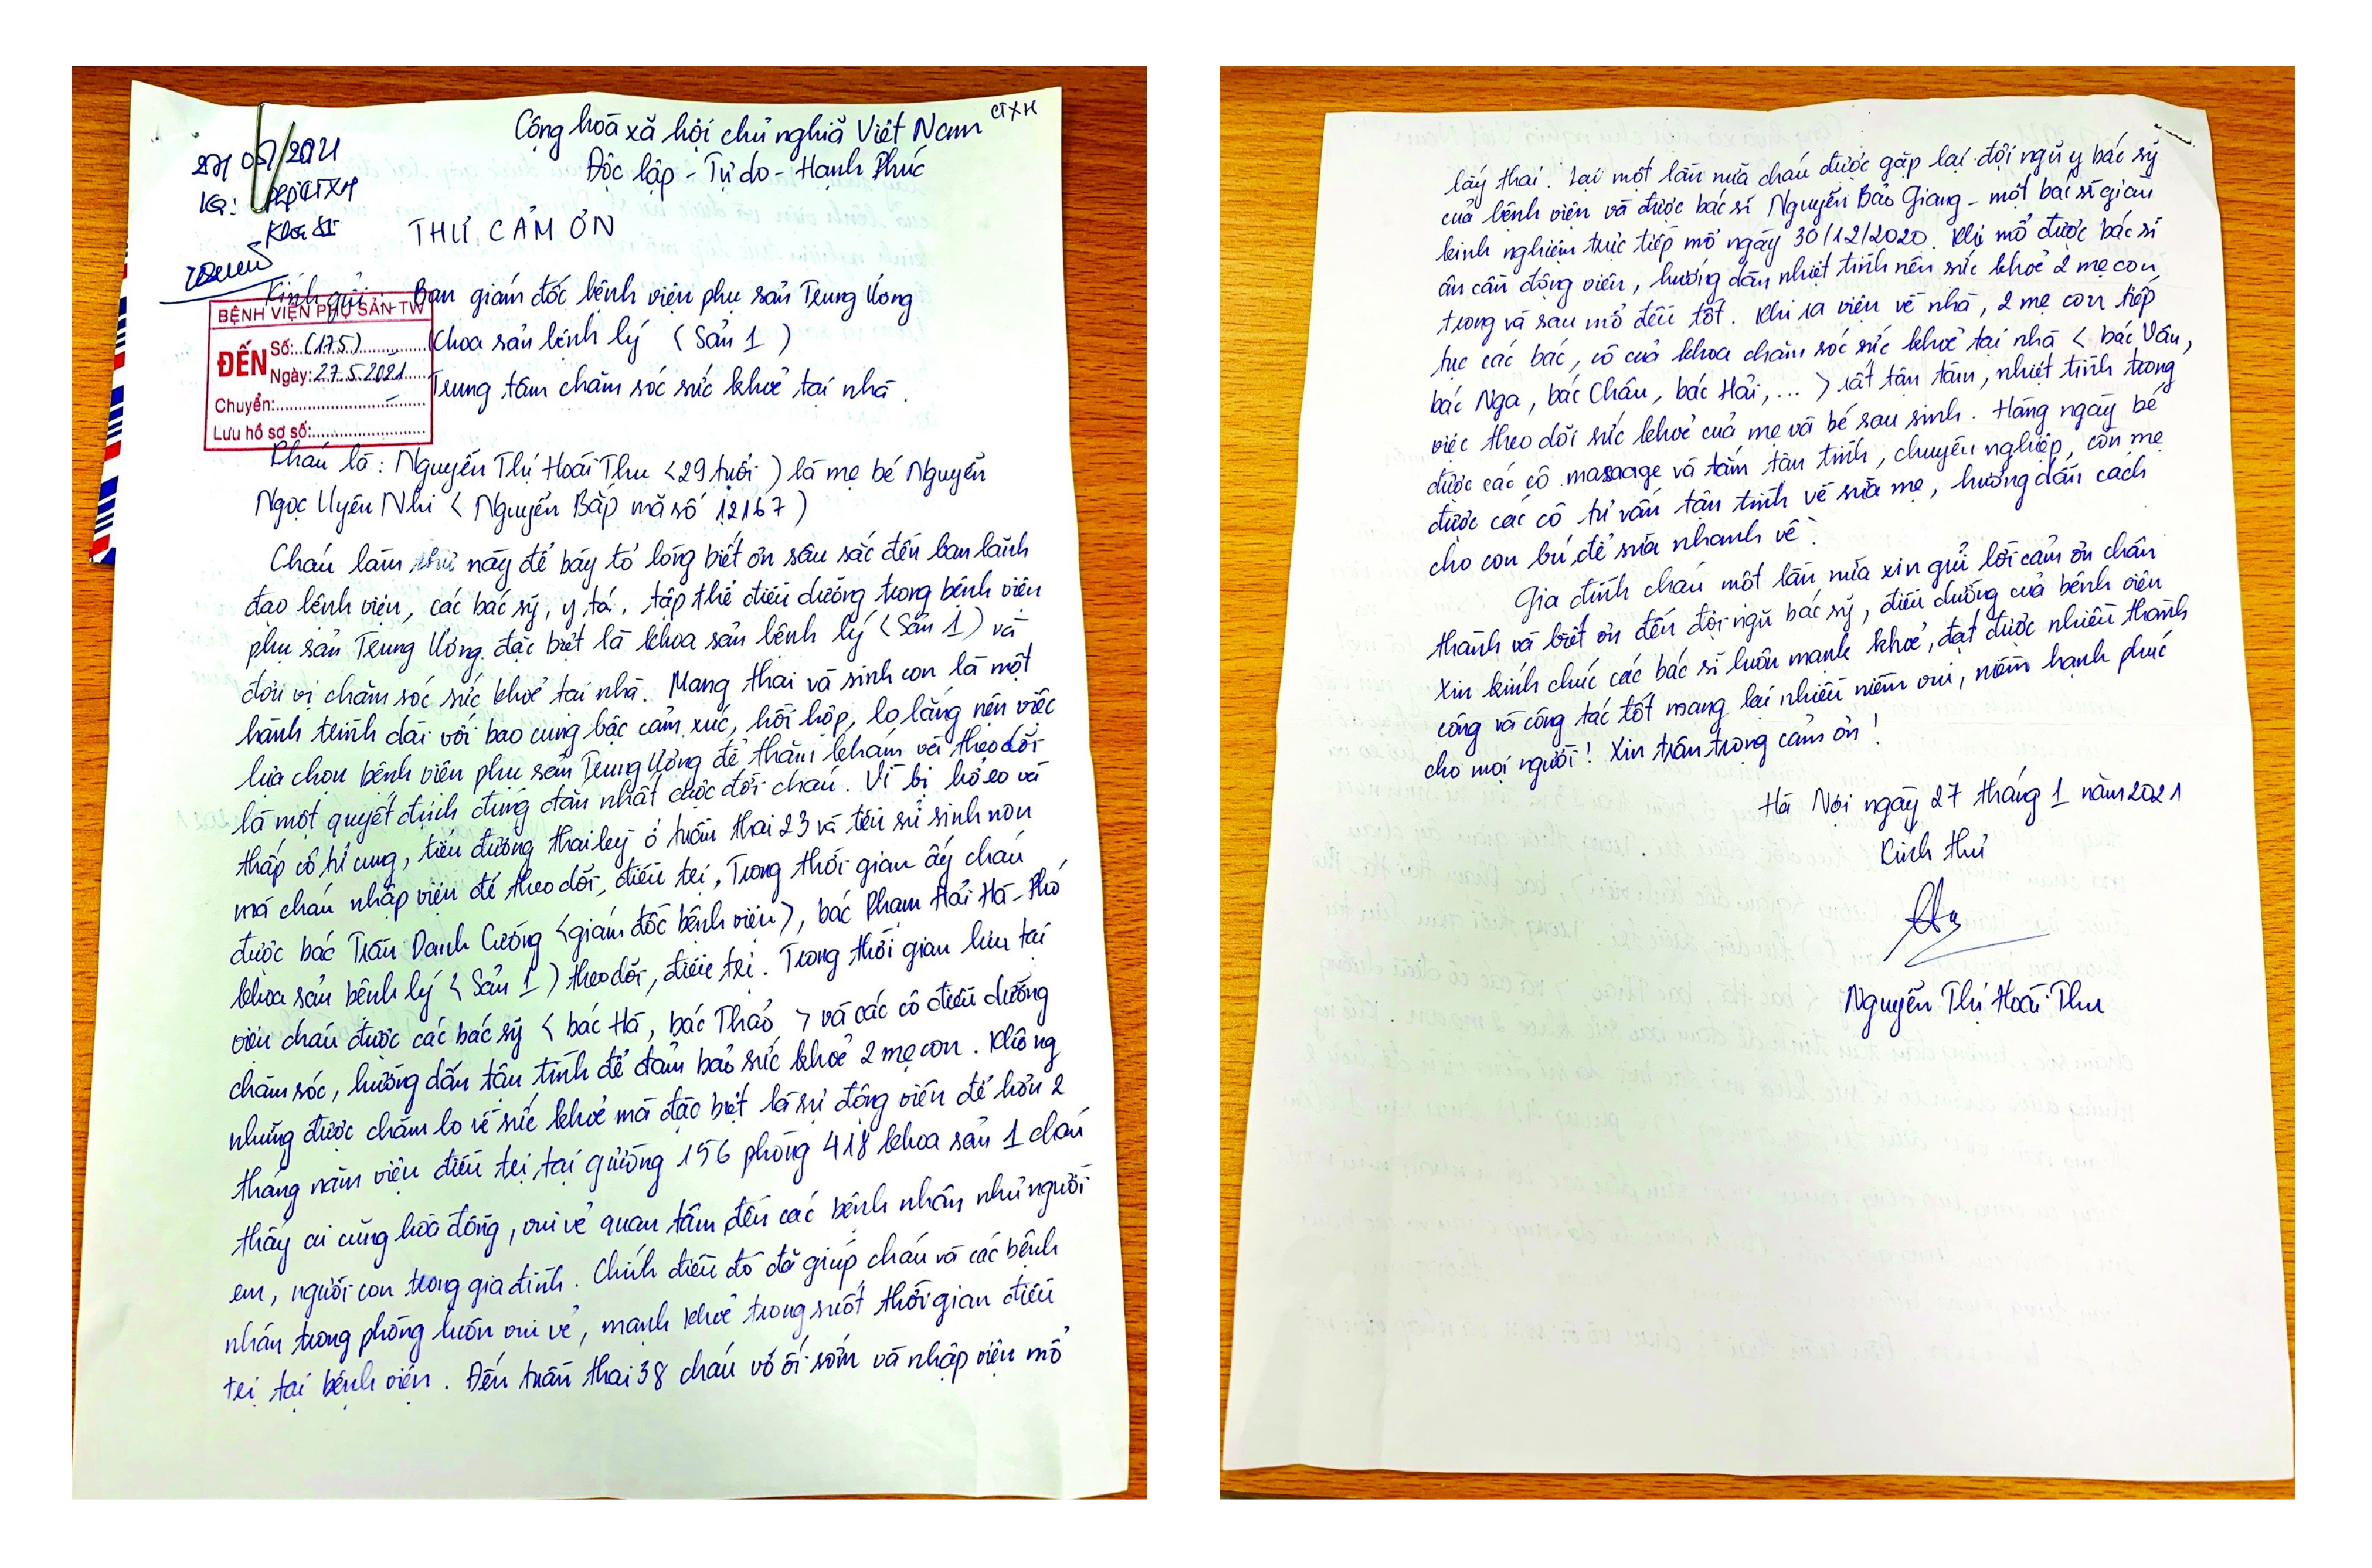 Cộng hoà xã hội chủ nghiã Việt Nam
CTXH
Độc lập - Tự do - Hạnh Phúc
27/05/2021
KG: Phòng CTXH
Khoa S1
THƯ CẢM ƠN
Kính gửi: Ban giám đốc bệnh viện phụ sản Trung Ương
Khoa sản bệnh lý (Sản 1)
Trung tâm chăm sóc sức khoẻ tại nhà.
BỆNH VIỆN PHỤ SẢN TW
ĐẾN
Số: (175)
Ngày: 27.5.2021
Chuyển:
Lưu hồ sơ số:
Cháu là: Nguyễn Thị Hoài Thu <29 tuổi) là mẹ bé Nguyễn
Ngọc Uyên Nhi < Nguyễn Bắp mã số 12167)
Cháu làm thư này để bày tỏ lòng biết ơn sâu sắc đến ban lãnh
đạo bệnh viện, các bác sỹ, y tá, tập thể điều dưỡng trong bệnh viện
phụ sản Trung Ương. đặc biệt là khoa sản bệnh lý <Sản 1) và
đơn vị chăm sóc sức khoẻ tại nhà. Mang thai và sinh con là một
hành trình dài với bao cung bậc cảm xúc, hồi hộp, lo lắng nên việc
lựa chọn bệnh viện phụ sản Trung Ương để thăm khám và theo dõi
là một quyết định đúng đắn nhất cuộc đời cháu. Vì bị hở eo và
thấp cổ tử cung, tiểu đường thai kỳ ở tuần thai 23 và tiền sử sinh non
mà cháu nhập viện để theo dõi, điều trị, Trong thời gian ấy cháu
được bác Trần Danh Cường <giám đốc bệnh viện>, bác Phạm Hải Hà - Phó
khoa sản bệnh lý < Sản 1) theo dõi, điều trị. Trong thời gian lưu tại
viện cháu được các bác sỹ < bác Hà, bác Thảo > và các cô điều dưỡng
chăm sóc, hướng dẫn tận tình để đảm bảo sức khoẻ 2 mẹ con. Không
những được chăm lo về sức khoẻ mà đặc biệt là sự động viên để hơn 2
tháng nằm viện điều trị tại giường 156 phòng 418 khoa sản 1 cháu
thấy ai cũng hoà đồng, vui vẻ quan tâm đến các bệnh nhân như người
em, người con trong gia đình. Chính điều đó đã giúp cháu và các bệnh
nhân trong phòng luôn vui vẻ, mạnh khoẻ trong suốt thời gian điều
trị tại bệnh viện. Đến tuần thai 38 cháu vỡ ối sớm và nhập viện mổ
lấy thai. Lại một lần nữa cháu được gặp lại đội ngũ y bác sỹ
của bệnh viện và được bác sĩ Nguyễn Bảo Giang - một bác sĩ giàu
kinh nghiệm trực tiếp mổ ngày 30/12/2020. Khi mổ được bác sĩ
ân cần động viên, hướng dẫn nhiệt tình nên sức khoẻ 2 mẹ con
trong và sau mổ đều tốt. Khi ra viện về nhà, 2 mẹ con tiếp
tục các bác, cô của khoa chăm sóc sức khoẻ tại nhà < bác Vân,
bác Nga, bác Châu, bác Hải,... > rất tận tâm, nhiệt tình trong
việc theo dõi sức khoẻ của mẹ và bé sau sinh. Hàng ngày bé
được các cô massage và tắm tận tình, chuyên nghiệp, còn mẹ
được các cô tư vấn tận tình về sữa mẹ, hướng dẫn cách
cho con bú để sữa nhanh về.
Gia đình cháu một lần nữa xin gửi lời cảm ơn chân
thành và biết ơn đến đội ngũ bác sỹ, điều dưỡng của bệnh viện
Xin kính chúc các bác sĩ luôn mạnh khoẻ, đạt được nhiều thành
công và công tác tốt mang lại nhiều niềm vui, niềm hạnh phúc
cho mọi người! Xin trân trọng cảm ơn!
Hà Nội ngày 27 tháng 1 năm 2021
Kính thư
Nguyễn Thị Hoài Thu